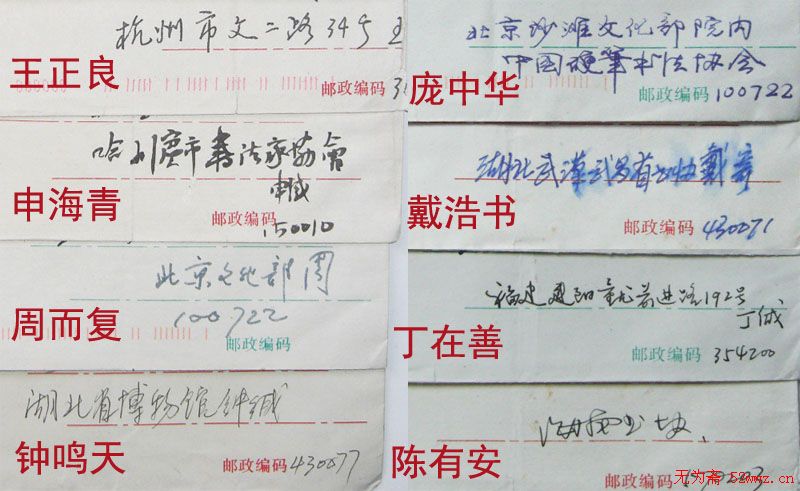 杭州市文二路34号 王
王正良
邮政编码 3
哈尔滨市书法家协会
申缄
申海青
邮政编码 150010
北京文化部周
周而复
100722
邮政编码
湖北省博物馆钟缄
钟鸣天
邮政编码 430077
北京沙滩文化部院内
中国硬笔书法协会
庞中华
邮政编码 100722
湖北武汉武昌省书协戴
戴浩书
邮政编码 430071
福建建阳童游前进路192号
丁缄
丁在善
邮政编码 354200
湖南书协
陈有安
邮政编码
无为斋 52wwz.cn